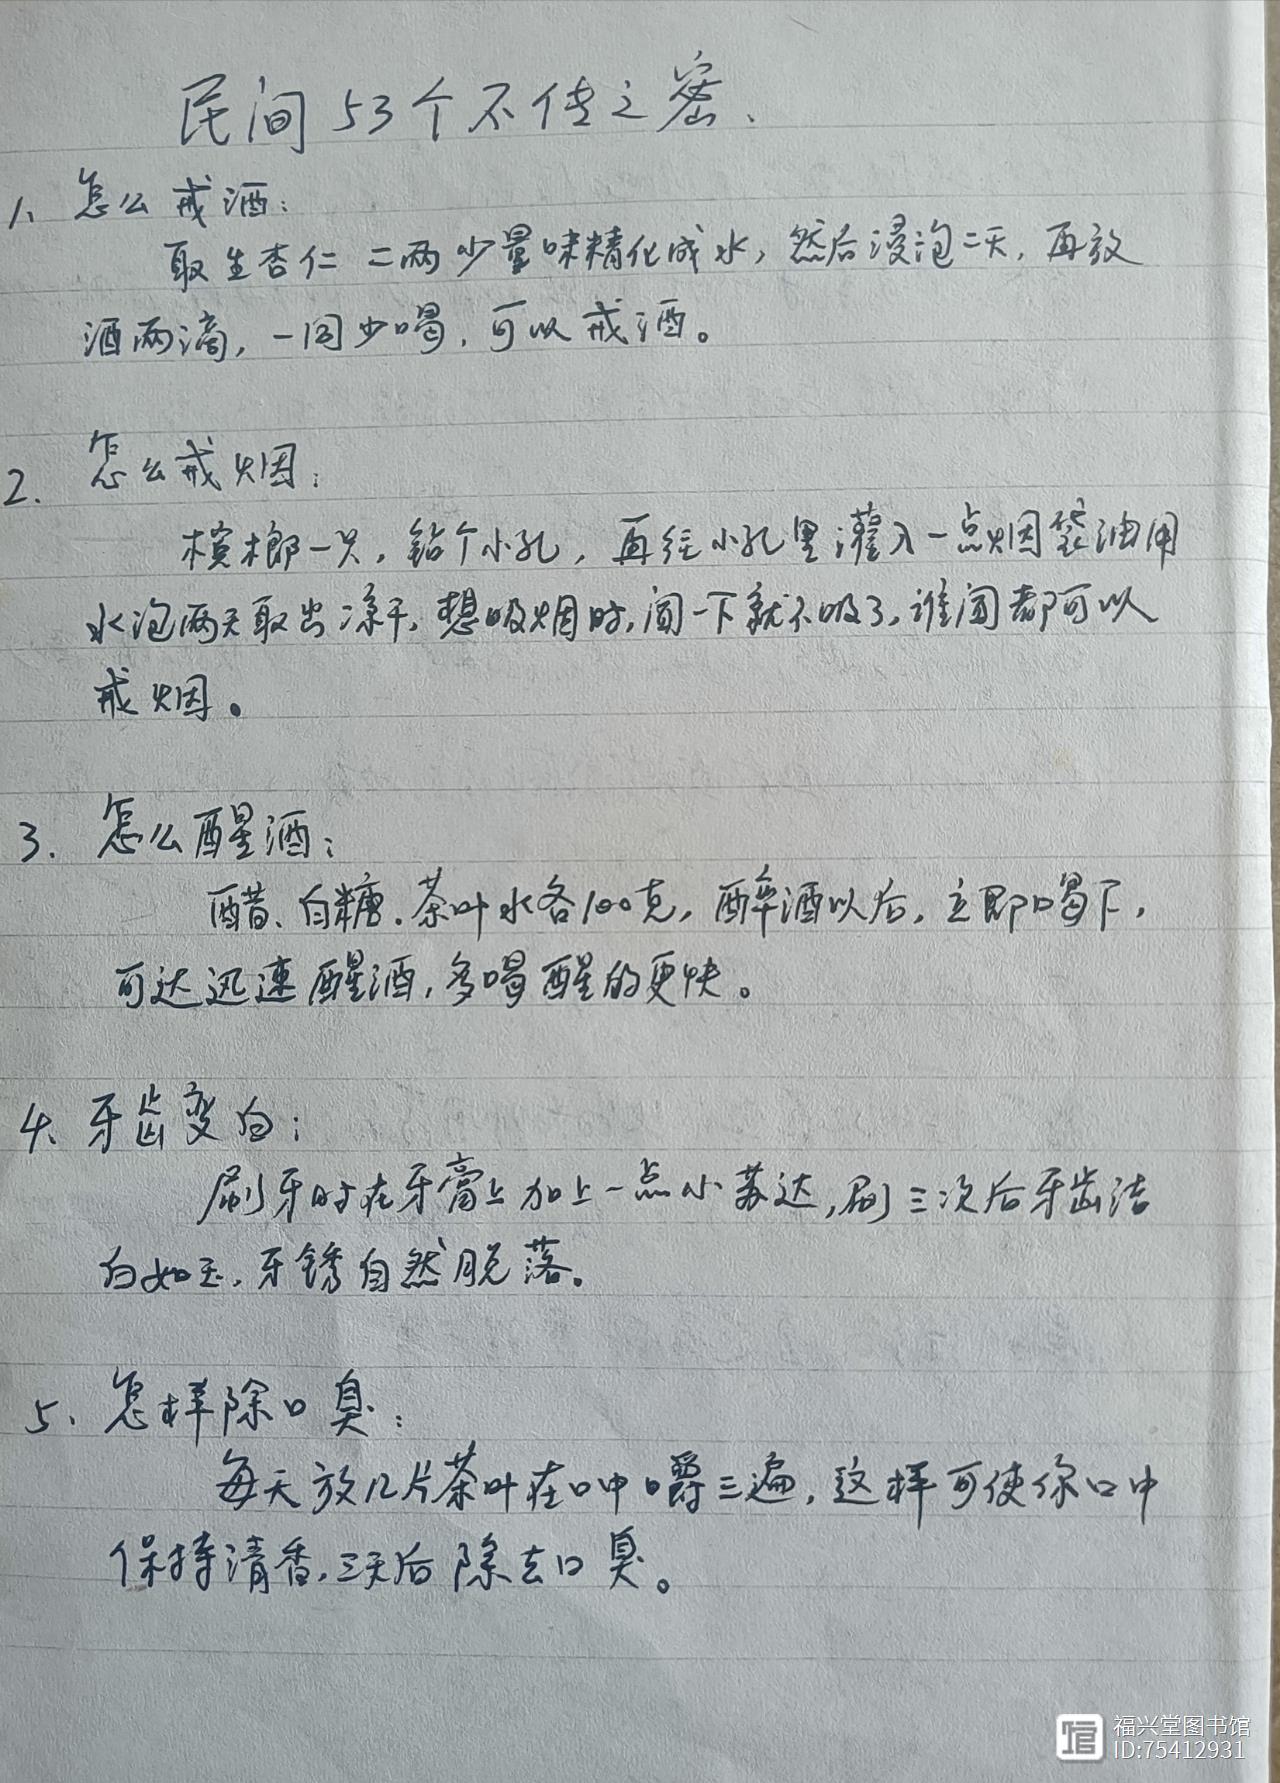 民间53个不传之密.
1、怎么戒酒:
取生杏仁二两少量味精化成水，然后浸泡二天，再放
酒两滴，一同少喝，可以戒酒。
2. 怎么戒烟:
槟榔一只，钻个小孔，再往小孔里灌入一点烟袋油用
水泡两天取出凉干，想吸烟时，闻一下就不吸了，谁闻都可以
戒烟。
3. 怎么醒酒:
醋、白糖.茶叶水各100克，醉酒以后，立即喝下，
可达迅速醒酒，多喝醒的更快。
4、牙齿变白:
刷牙时在牙膏上加上一点小苏达,刷三次后牙齿洁
白如玉，牙锈自然脱落。
5、怎样除口臭:
每天放几片茶叶在口中嚼三遍，这样可使你口中
保持清香，三天后除去口臭。
福兴堂图书馆
ID:75412931